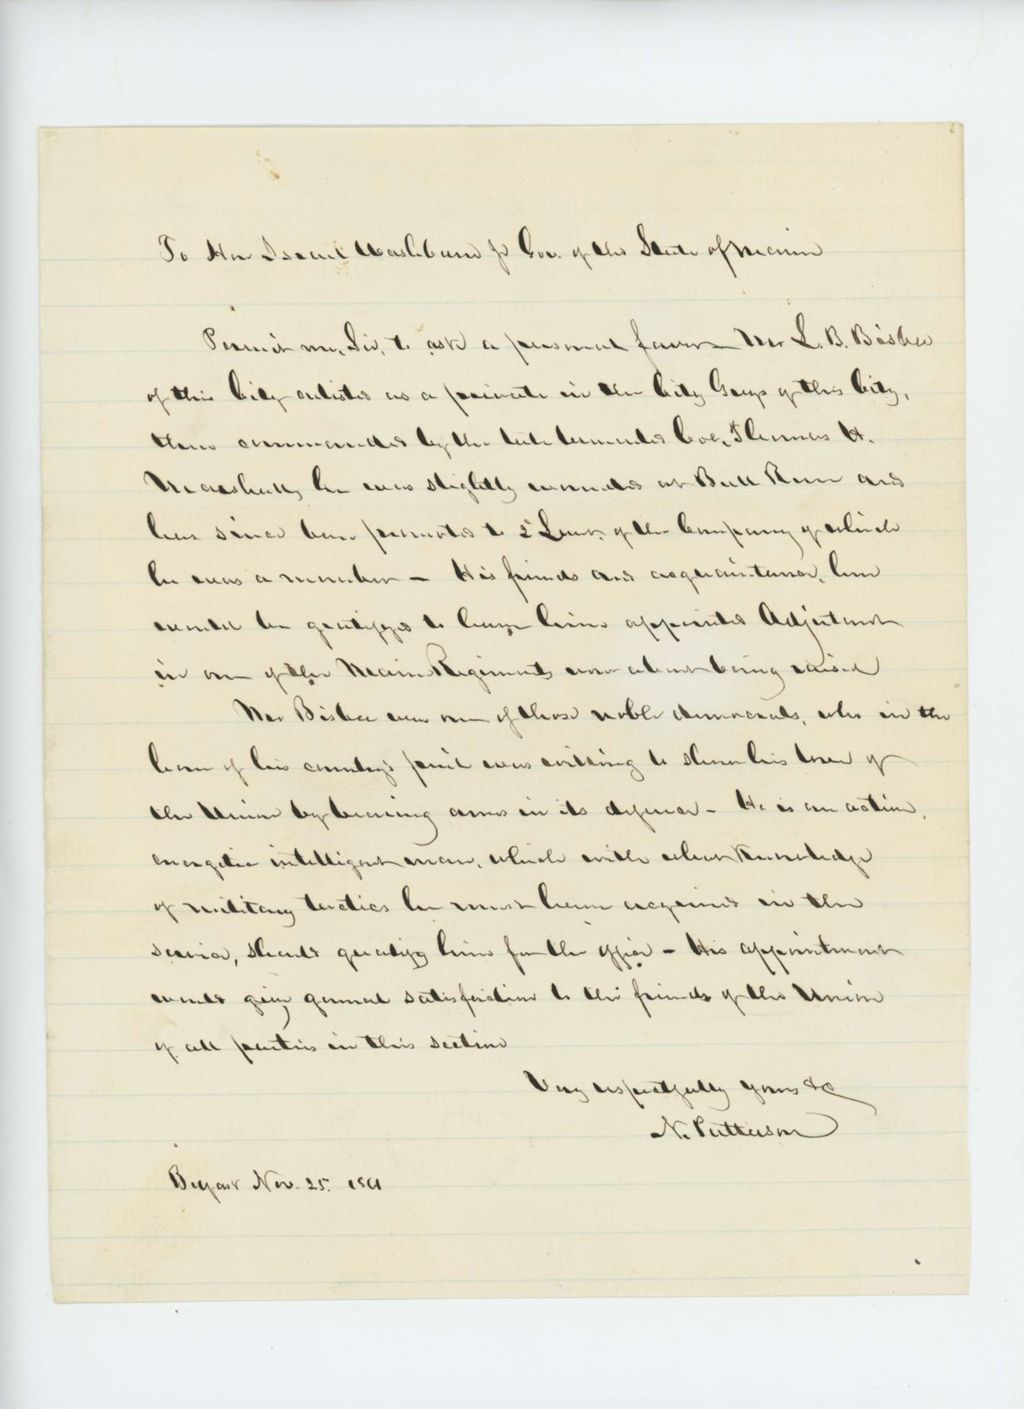 To Hon Israel Washburn Jr Gov. of the State of Maine
Permit me, Sir, to ask a personal favor - Mr L. B. Bisbee
of this City enlisted as a private in the City Greys of this City,
then commanded by the late lamented Col. Thomas H.
Marshall, he was slightly wounded at Bull Run and
has since been promoted to 2d Lieut. of the Company of which
he was a member - His friends and acquaintance, here
would be gratified to have him appointed Adjutant
in one of the Maine Regiments now about being raised
Mr Bisbee was one of those noble democrats, who in the
hour of his country's peril was willing to show his love of
the Union by bearing arms in its defence - He is an active,
energetic intelligent man, which with what knowledge
of military tactics he must have acquired in the
service, should qualify him for the office - His appointment
would give general satisfaction to the friends of the Union
of all parties in this section
Very respectfully yours &c
N. Patterson
Belfast Nov. 25. 1861